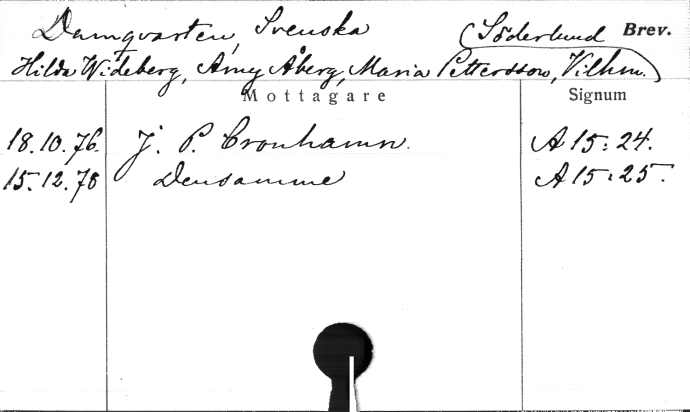 Damqvartetten, Svenska (Söderlund Brev.
Hilda Wideberg, Amy Åberg, Maria Pettersson, Vilhm.)
Mottagare Signum
18.10.76. J. P. Cronhamn. A 15:24.
15.12.78 Densamme A 15:25.